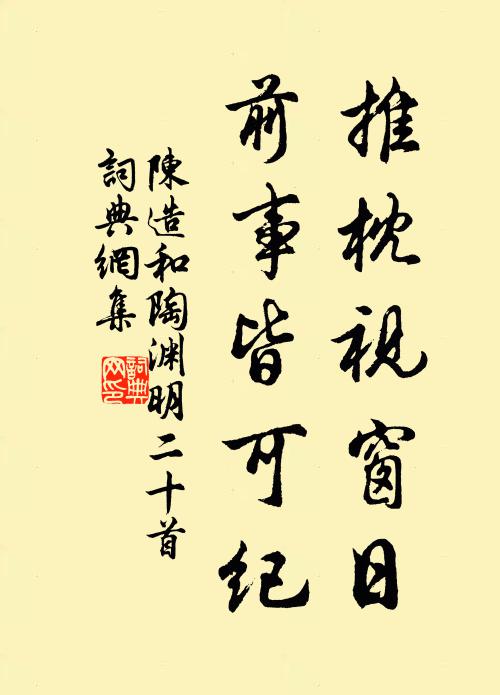 推枕視窗日
前事皆可紀
陳造和陶淵明二十首
詞典網集
詞典
网印